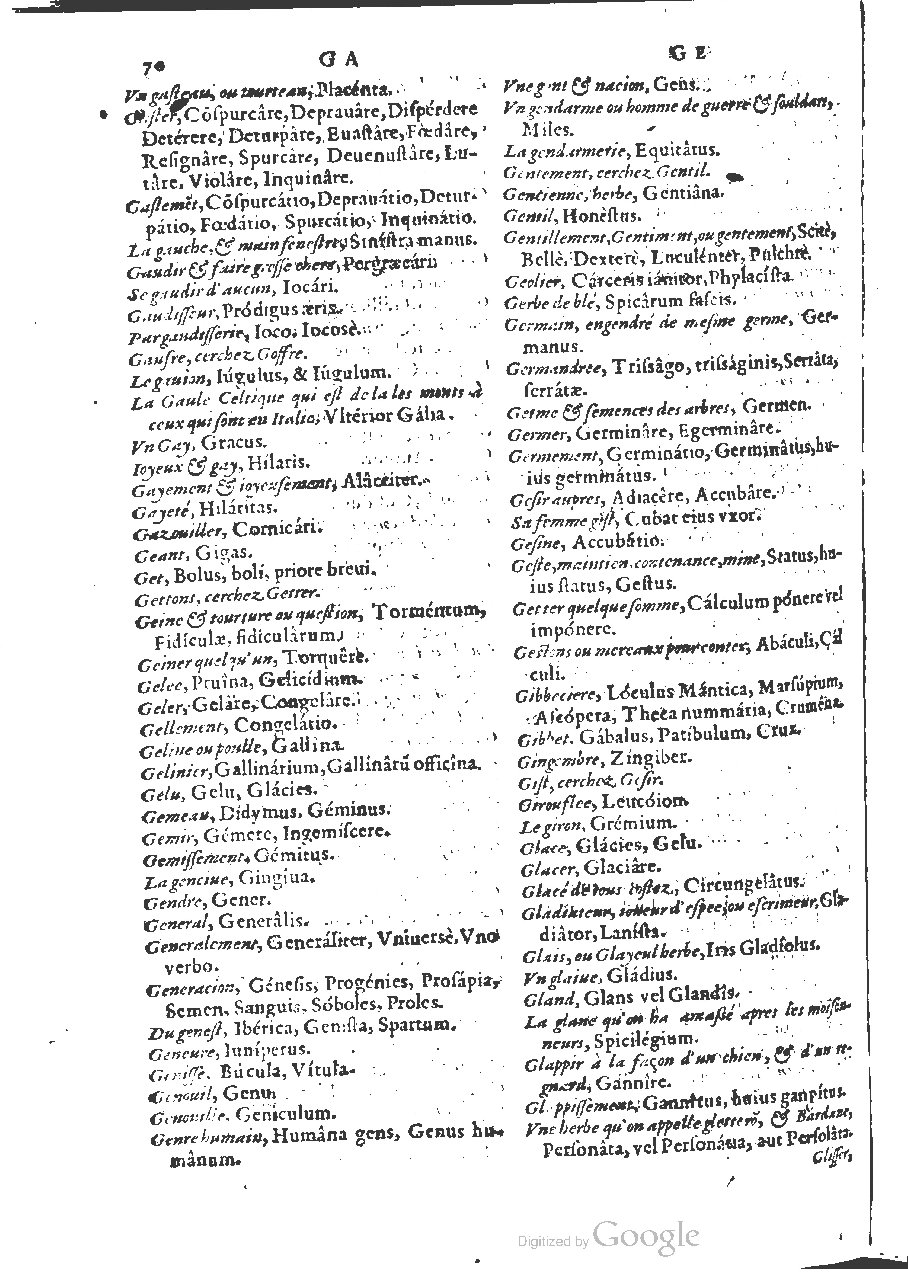 70
G A
G E
Vn gasteau, ou tourteau, Placénta.
Gaster, Cōſpurcâre, Deprauâre, Diſpérdere
Detérere, Deturpâre, Euaſtâre, Fœdâre,
Reſignâre, Spurcâre, Deuenuſtâre, Lu-
târe. Violâre, Inquinâre.
Gaſtemēt, Cōſpurcátio, Deprauátio, Detur-
pátio, Fœdátio, Spurcátio, Inquinátio.
La gauche, & main feneſtre, Siniſtra manus.
Gaudir & faire groſſe chere, Pergræcári
Se gaudir d'aucun, Iocári.
Gaudiſſeur, Pródigus æris.
Par gaudiſſerie, Ioco. Iocosè.
Gaufre, cerchez Goffre.
Le gauion, Iúgulus, & Iúgulum.
La Gaule Celtique qui eſt de la les monts à
ceux qui ſont en Italie, Vltérior Gália.
Vn Gay, Gracus.
Ioyeux & gay, Hilaris.
Gayement & ioyeuſement, Alácriter.
Gayeté, Hiláritas.
Gazouiller, Cornicári.
Geant, Gigas.
Get, Bolus, boli, priore breui.
Gettons, cerchez Getter.
Geine & tourture ou queſtion, Torméntum,
Fidículæ, fidiculàrum,
Geiner quelqu'un, Torquêre.
Gelee, Pruîna, Gelicídium.
Geler, Geláre, Congeláre.
Gellement, Congelátio.
Geline ou poulle, Gallína
Gelinier, Gallinárium, Gallinârū officina.
Gelu, Gelu, Glácies.
Gemeau, Dídymus. Géminus.
Gemir, Gémere, Ingemiſcere.
Gemiſſement, Gémitus.
La genciue, Gingiua.
Gendre, Gener.
General, Generâlis.
Generalement, Generáliter, Vniuersè. Vno
verbo.
Generacion, Géneſis, Progénies, Proſápia,
Semen, Sanguis, Sóboles, Proles.
Du geneſt, Ibérica, Geniſta, Spartum.
Geneure, Iuníperus.
Geniſſe. Búcula, Vítula.
Genouil, Genu
Genouillie. Genículum.
Genre humain, Humâna gens, Genus hu-
mânum.
Vne gent & nacion, Gens.
Vn gendarme ou homme de guerre & ſouldan,
Miles.
La gendarmerie, Equitâtus.
Gentement, cerchez Gentil.
Gentienne, herbe, Gentiâna.
Gentil, Honéſtus.
Gentillement, Gentiment, ou gentement, Scitè,
Bellè, Dexterè, Luculénter, Pulchrè.
Geolier, Cárceris iánitor, Phylaciſta.
Gerbe de blé, Spicârum faſcis.
Germain, engendré de meſme germe, Ger-
manus.
Germandree, Triſſâgo, triſſáginis, Serrâta,
ſerrátæ.
Germe & ſemences des arbres, Germen.
Germer, Germinâre, Egerminâre.
Germement, Germinátio, Germinâtus, hu-
ius germinátus.
Geſir aupres, Adiacêre, Accubâre.
Sa femme giſt, Cubat eius vxor.
Geſine, Accubátio.
Geſte, maintien, contenance, mine, Status, hu-
ius ſtatus, Geſtus.
Getter quelque ſomme, Cálculum pónere vel
impónere.
Gectens ou mereaux pour conter, Abáculi, Cál
culi.
Gibbeciere, Lóculus Mántica, Marſúpium,
Aſcópera, Theca nummária, Crumêna.
Gibbet. Gábalus, Patíbulum, Crux.
Gingembre, Zíngiber.
Giſt, cerchez Geſir.
Girouflee, Leucóion
Le giron, Grémium.
Glace, Glácies, Gelu.
Glacer, Glaciâre.
Glacé de tous coſtez, Circungelâtus.
Gladiateur, ioueur d'eſpee, ou eſcrimeur, Gla-
diâtor, Laníſta.
Glais, ou Glayeul herbe, Iris Gladíolus.
Vn glaiue, Gládius.
Gland, Glans vel Glandis.
La glane qu'on ha amaſſé apres les moiſſon-
neurs, Spicilégium.
Glappir à la façon d'un chien, & d'un re-
gnard, Gannîre.
Glappiſſement, Gannítus, huius gannítus.
Vne herbe qu'on appelle gletterō, & Bardane,
Perſonâta, vel Perſonátia, aut Perſolâta.
Gliſſer,
Digitized by Google